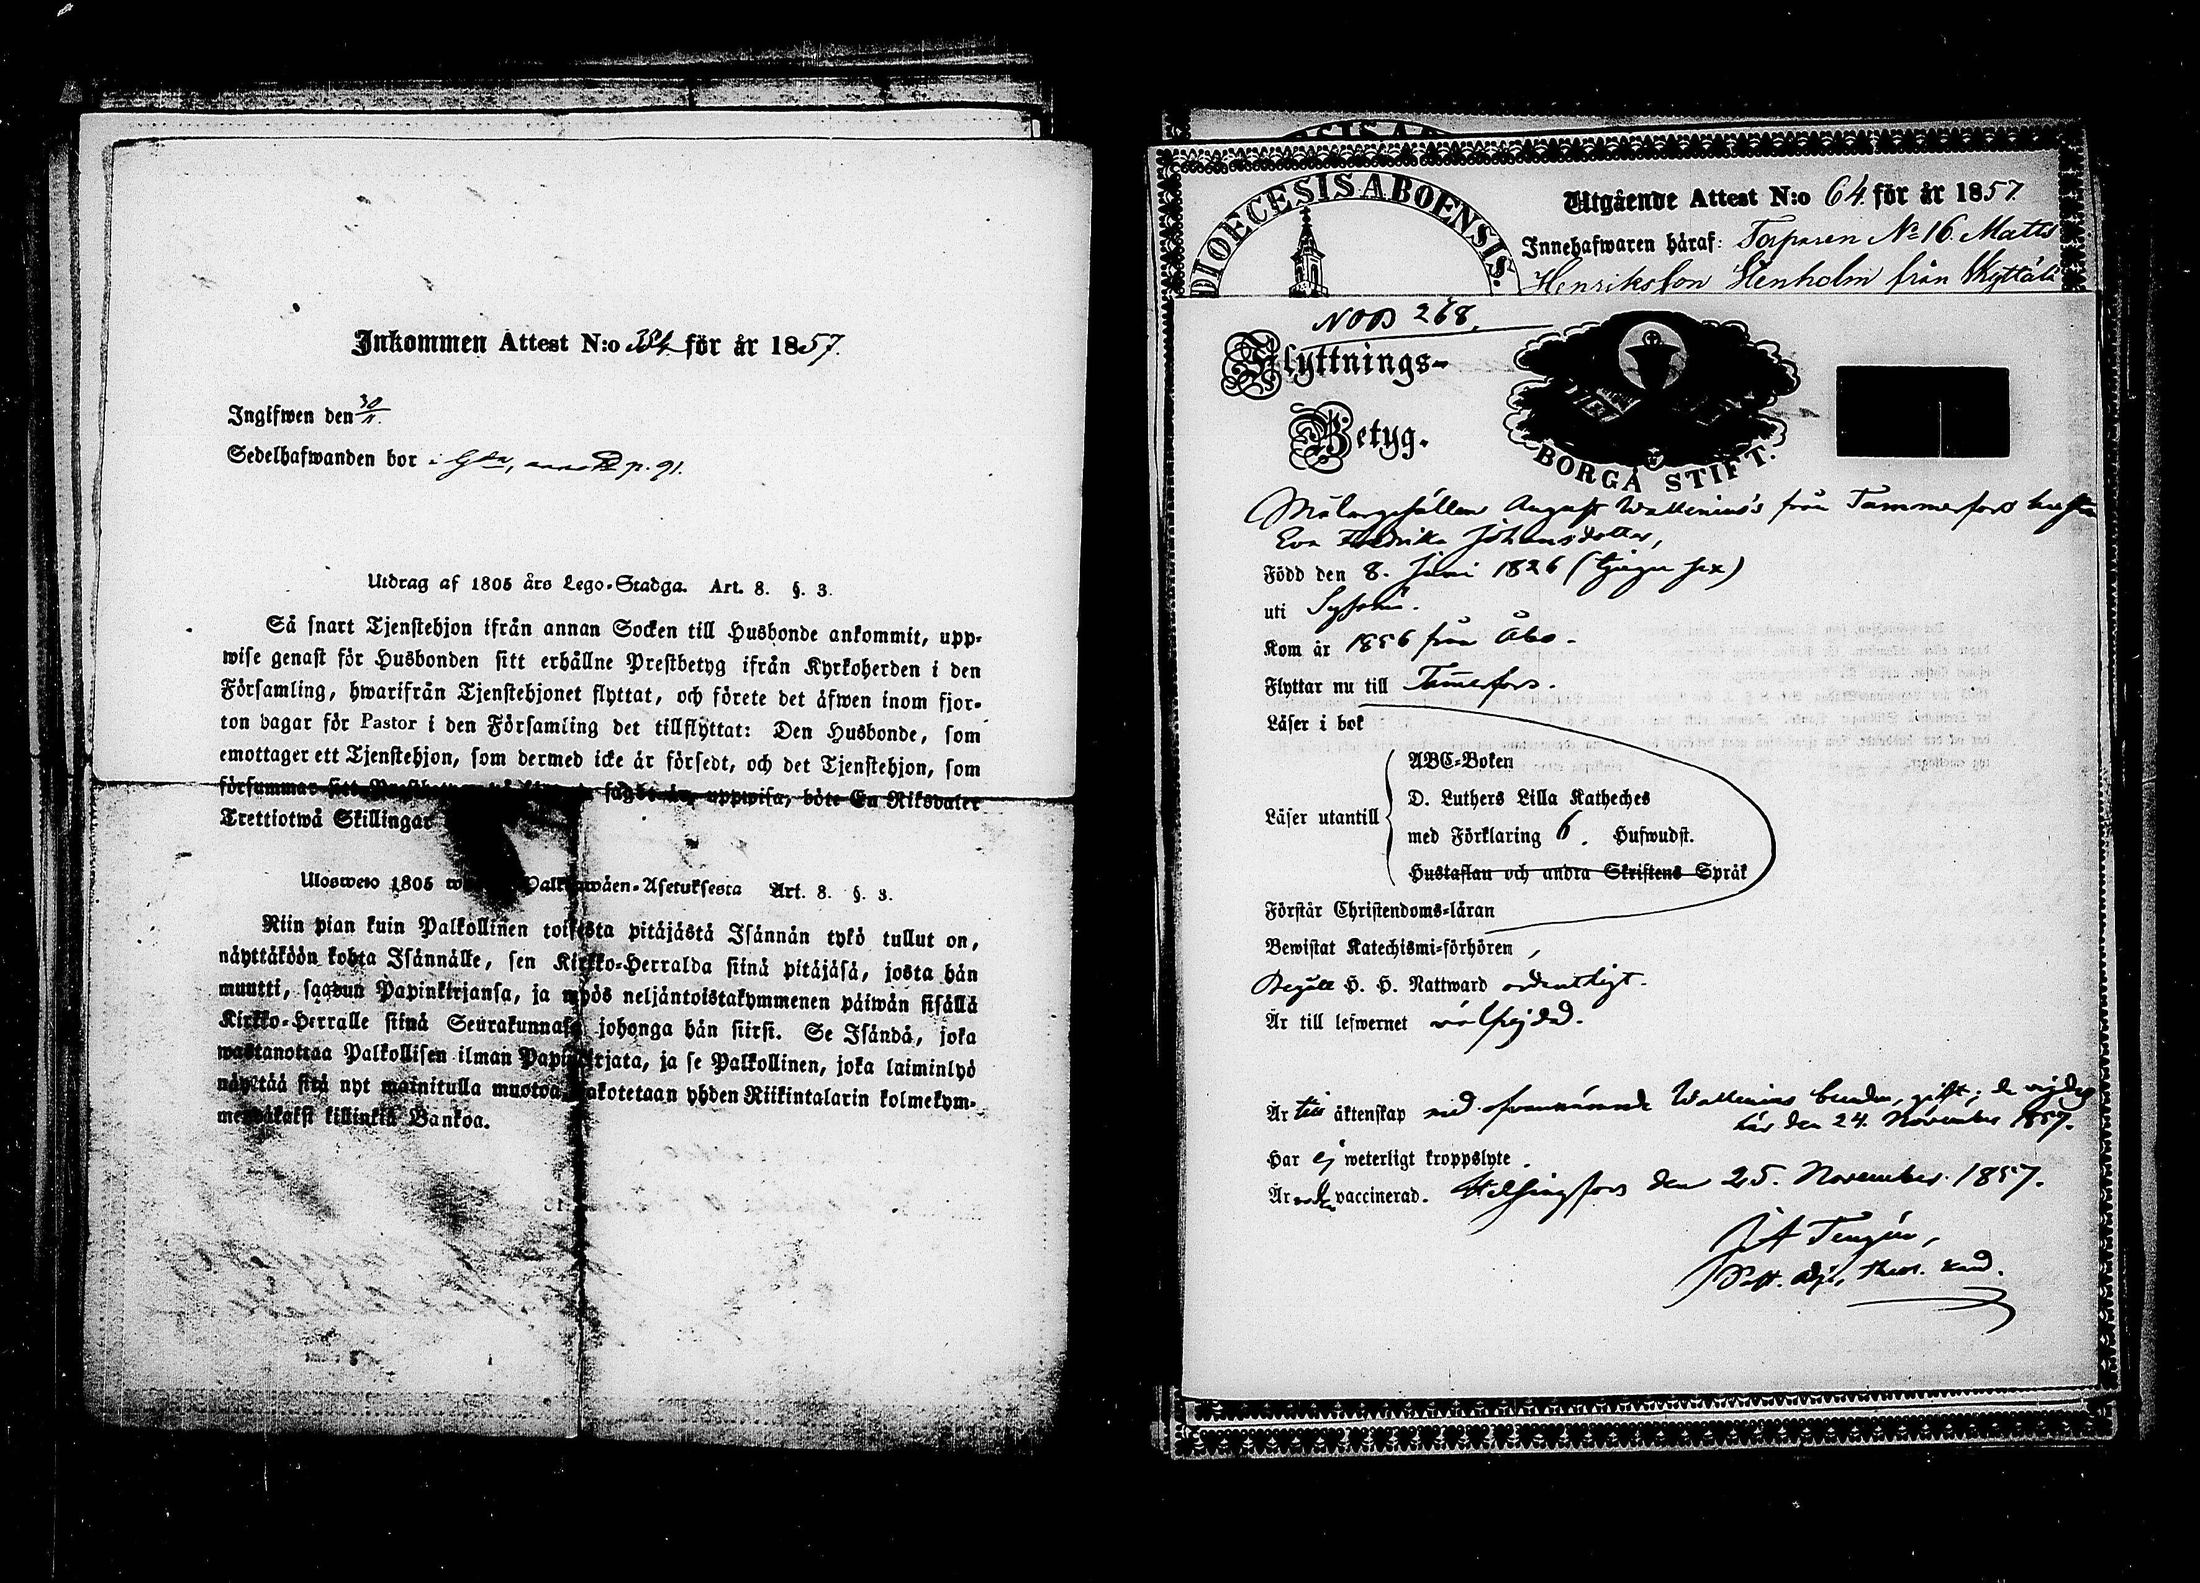 Inkommen Attest N:o 384. för år 1857.
Ingifwen den 30/11.
Sedelhafwanden bor i p. 91.
Utdrag af 1805 års Lego-Stadga. Art. 8. §. 3.
Så snart Tjenstehjon ifrån annan Socken till Husbonde ankommit, upp-
wise genast för Husbonden sitt erhållne Prestbetyg ifrån Kyrkoherden i den
Församling, hwarifrån Tjenstehjonet flyttat, och förete det äfwen inom fjor-
ton dagar för Pastor i den Församling det tillflyttat: Den Husbonde, som
emottager ett Tjenstehjon, som dermed icke är försedt, och det Tjenstehjon, som
försummar sitt uppwisa, böte En Riksdaler
Trettiotwå Skillingar
Uloswето 1805 Art. 8. §. 3.
Niin pian kuin Palkollinen toisesta pitäjästä Isännän tykö tullut on,
näyttäköön kohta Isännälle, sen Kirkko-Herralda siinä pitäjäsä, josta hän
muutti, saadun Papinkirjansa, ja myös neljäntoistakymmenen päiwän sisällä
Kirkko-Herralle siinä Seurakunnasa johonga hän siirsi. Se Isändä, joka
wastanottaa Palkollisen ilman Papinkirjata, ja se Palkollinen, joka laiminlyö
näyttää sitä nyt mainitulla muotoa, sakotetaan yhden Riikintalarin kolmekym-
mendäkaksi killinkiä Bankoa.
DIOECESIS ABOENSIS.
Utgående Attest N:o 64. för år 1857.
Innehafwaren häraf: Torparen No 16. Matts
Henriksson Stenholm från Kyttälä
NOD 268.
Flyttnings-
Betyg.
BORGÅ STIFT.
Målargesällen August Wallenius's från Tammerfors hustru
Eva Fredrika Johansdotter,
Född den 8. Juni 1826 (tjugu sex)
uti
Kom år 1856 från Åbo.
Flyttar nu till Tam̄erfors.
Läser i bok
ABC-Boken
D. Luthers Lilla Katheches
Läser utantill
med Förklaring 6. Hufwudst.
Hustaflan och andra Skriftens Språk
Förstår Christendoms-läran
Bewistat Katechismi-förhören
Begått H. H. Nattward ordentligt.
Är till lefwernet wälfrejdad.
Är till äktenskap med ofvannämnde Wallenius bunden, gift; de vigdes
här den 24. November 1857.
Har ej weterligt kroppslyte.
Är vaccinerad. Helsingfors den 25. November. 1857.